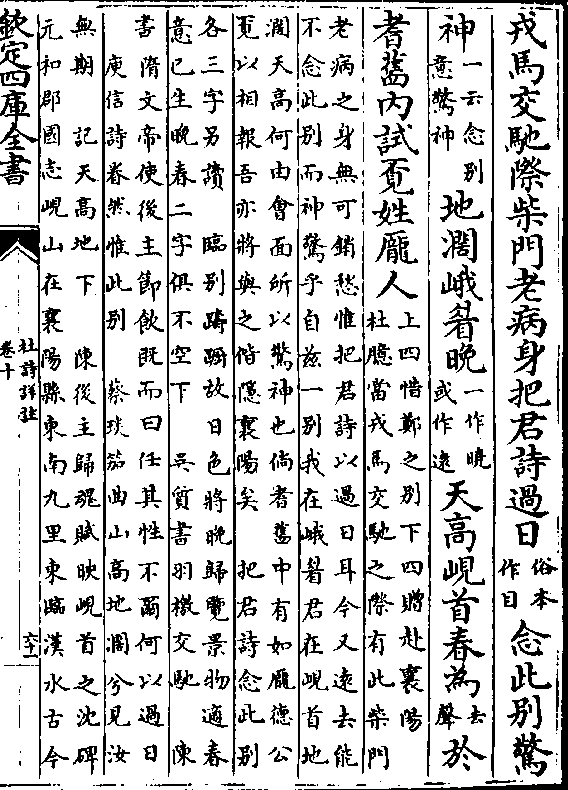 戎馬交馳際柴門老病身把君詩過日俗本作目念此別驚
神一云念別意驚神地濶峨睂晚一作曉或作遠天高峴首春為去聲於
耆舊内試覔姓龐人上四惜鄭之別下四贈赴襄陽
杜臆當戎馬交馳之際有此柴門
老病之身無可銷愁惟把君詩以過日耳今又遠去能
不念此別而神驚乎自兹一別我在峨睂君在峴首地
濶天高何由會面所以驚神也倘耆舊中有如龐德公
覔以相報吾亦將與之偕隱襄陽矣 把君詩念此別
各三字另讀 臨別躊躇故日色將晚歸覽景物適春
意已生晚春二字俱不空下 吳質書羽檄交馳 陳
書隋文帝使後主節飲既而曰任其性不爾何以過日
庾信詩眷然惟此別 蔡琰笳曲山高地濶兮見汝
無期 記天高地下 陳後主歸魂賦映峴首之沈碑
元和郡國志峴山在襄陽縣東南九里東臨漢水古今
欽定四庫全書
杜詩詳註
卷十
六十一